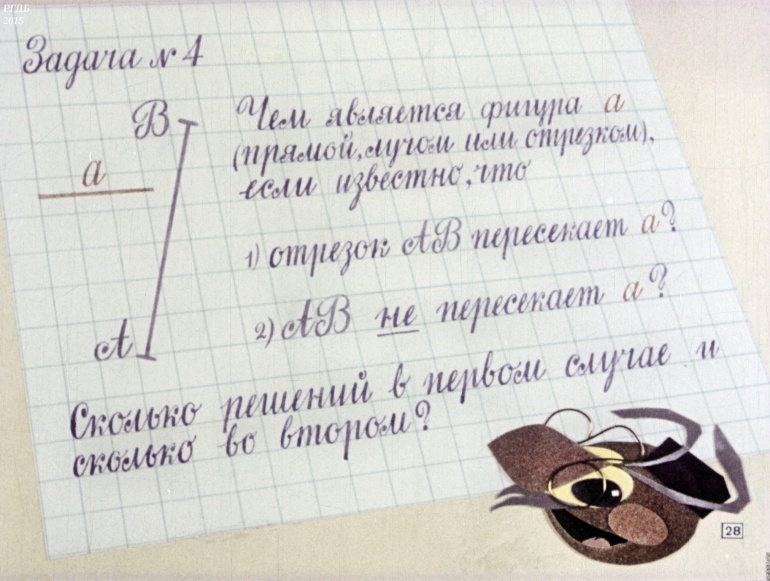 РГДБ
2015
Задача № 4
В
а
А
Чем является фигура а
(прямой, лучом или отрезком),
если известно, что
1) отрезок АВ пересекает а?
2) АВ не пересекает а?
Сколько решений в первом случае и
сколько во втором?
28